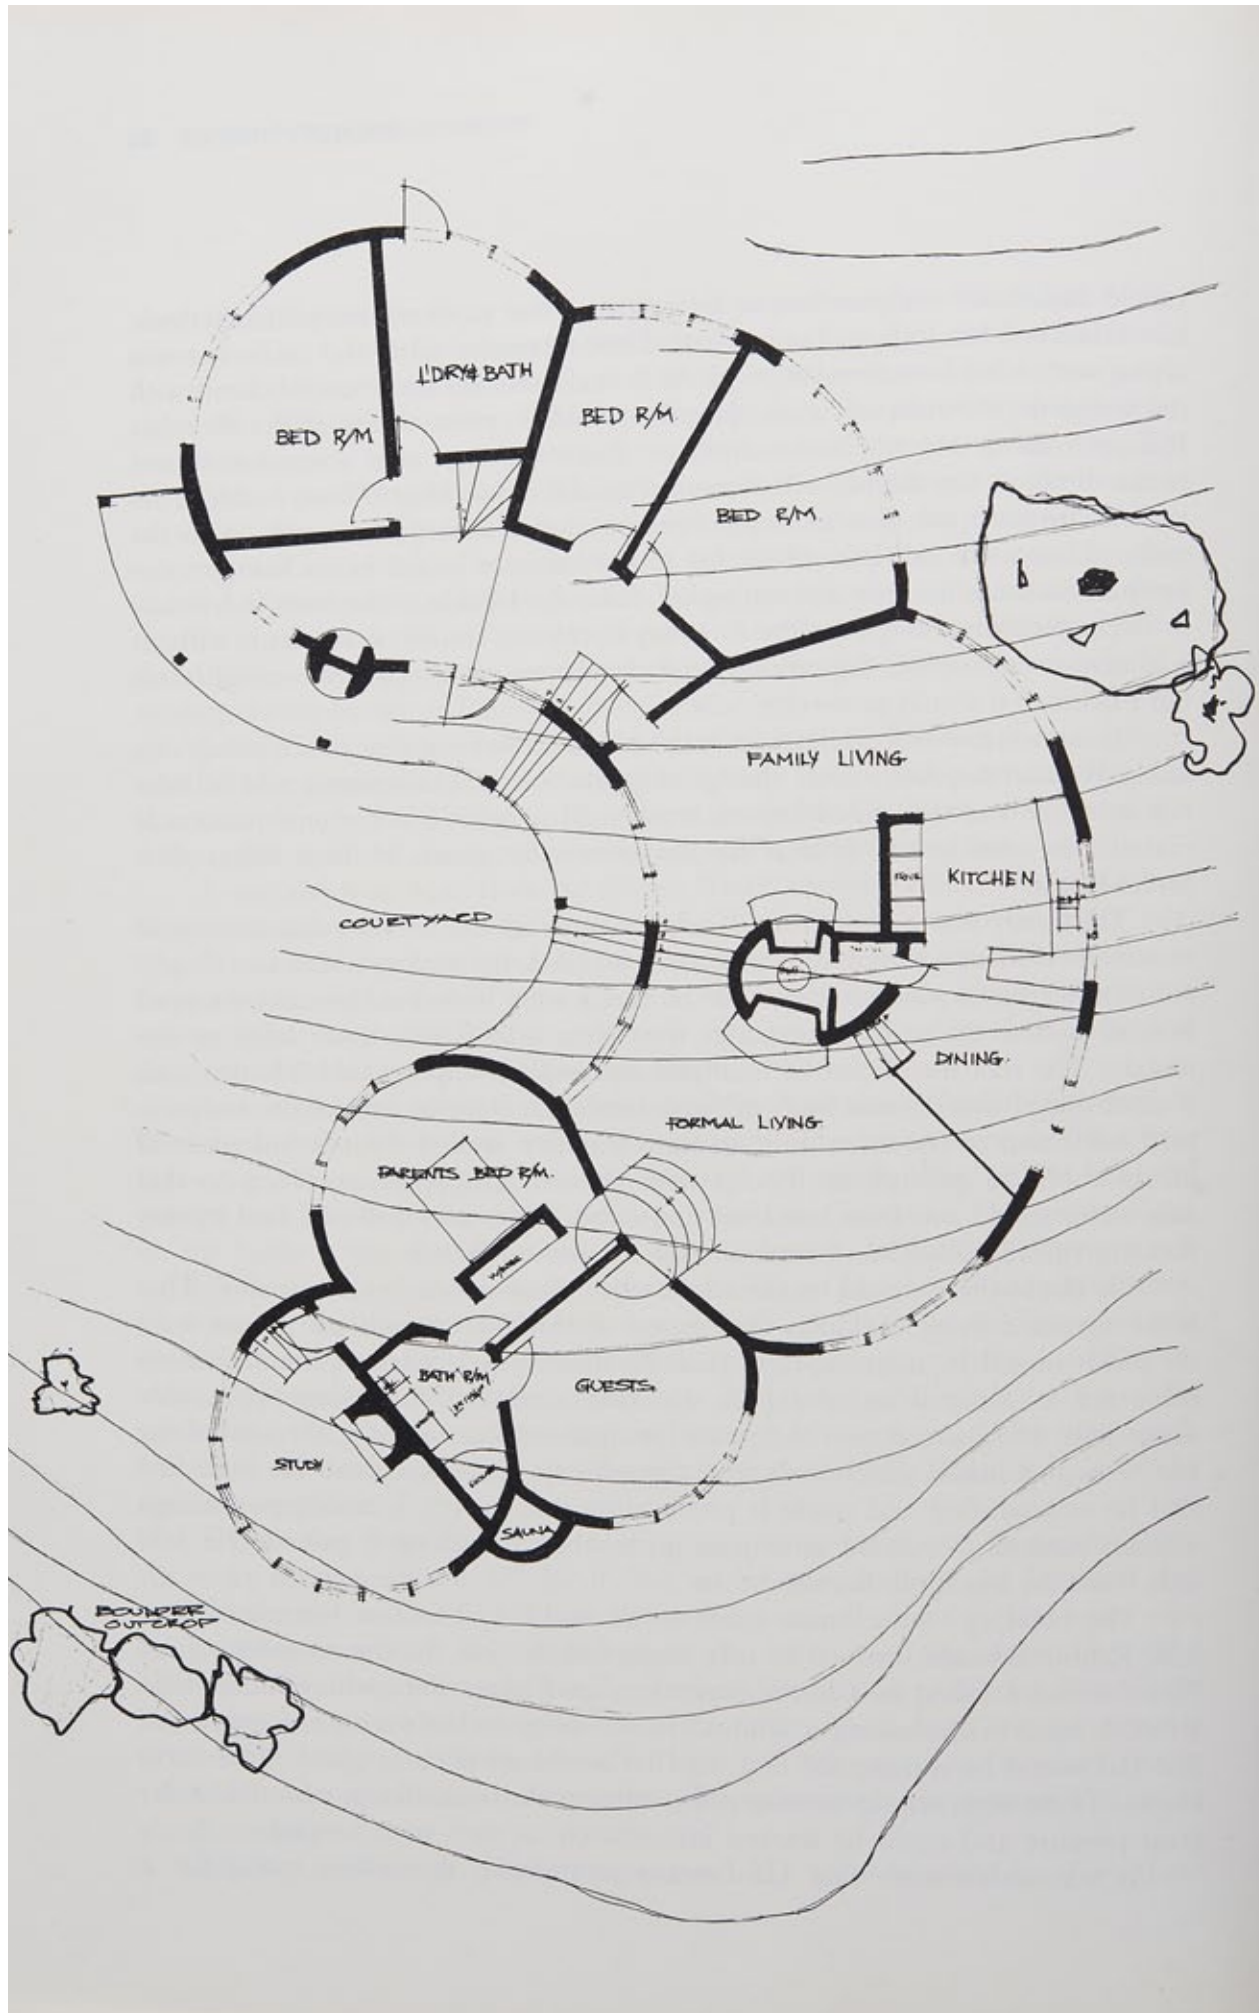 L'DRY & BATH
BED R/M
BED R/M
BED R/M.
FAMILY LIVING
KITCHEN
COURTYARD
DINING.
FORMAL LIVING
PARENTS BED R/M.
BATH R/M
GUESTS.
STUDY
SAUNA
BOULDER
OUTCROP